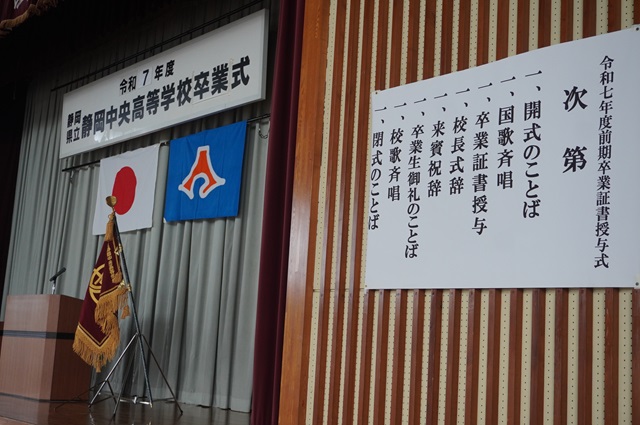 令和7年度
静岡県立静岡中央高等学校卒業式
令和七年度前期卒業証書授与式
次第
一、開式のことば
一、国歌斉唱
一、卒業証書授与
一、校長式辞
一、来賓祝辞
一、卒業生御礼のことば
一、校歌斉唱
一、閉式のことば